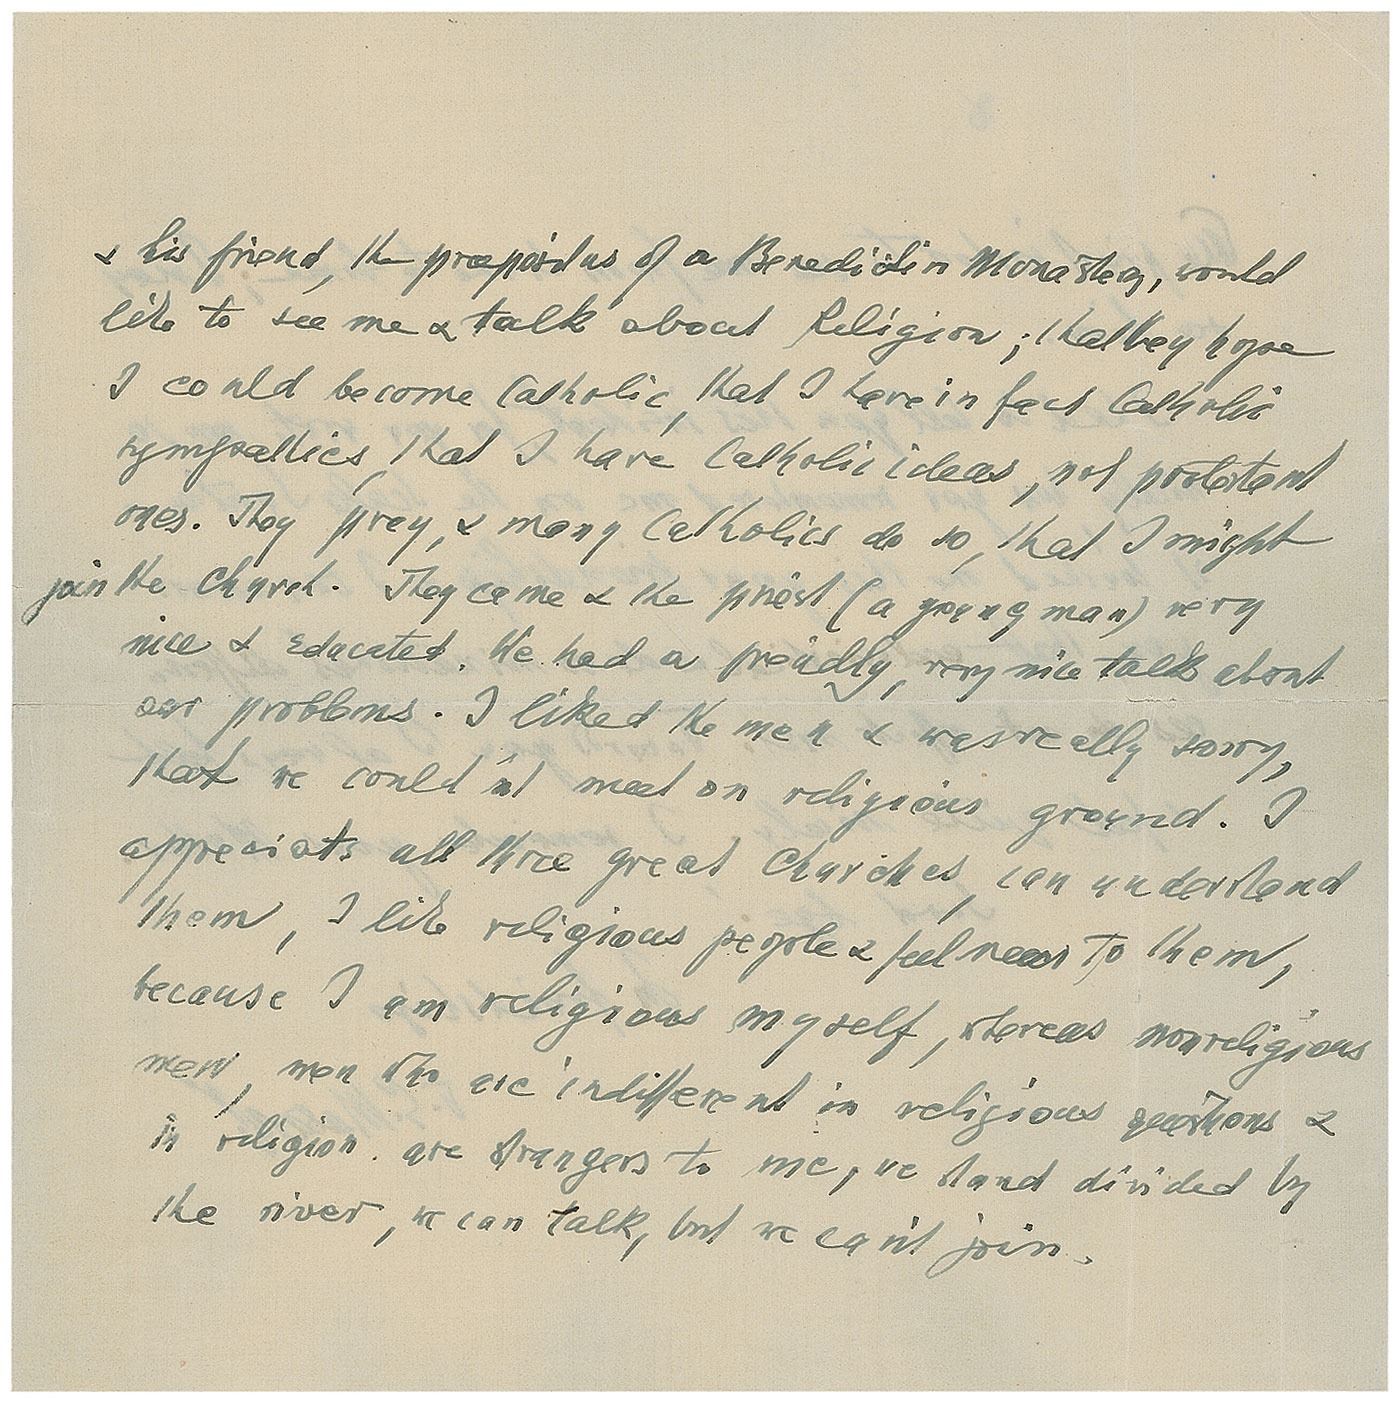 & his friend, the praepositus of a Benedictin Monastery, would
like to see me & talk about Religion; that they hope
I could become Catholic, that I have in fact Catholic
sympathies, that I have Catholic ideas, not protestant
ones. They pray, & many Catholics do so, that I might
join the Church. They came & the priest (a young man) very
nice & educated. We had a freindly, very nice talk about
our problems. I liked the men & was really sorry,
that we could'nt meet on religious ground. I
appreciate all three great Churches, can understand
them, I like religious people & feel near to them,
because I am religious myself, whereas nonreligious
men, men who are indifferent in religious questions &
in religion are strangers to me, we stand divided by
the river, we can talk, but we can't join.